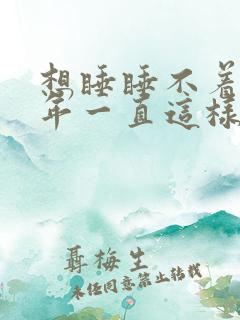 想睡睡不着
年一直這樣
聶梅生
未经同意禁止转载